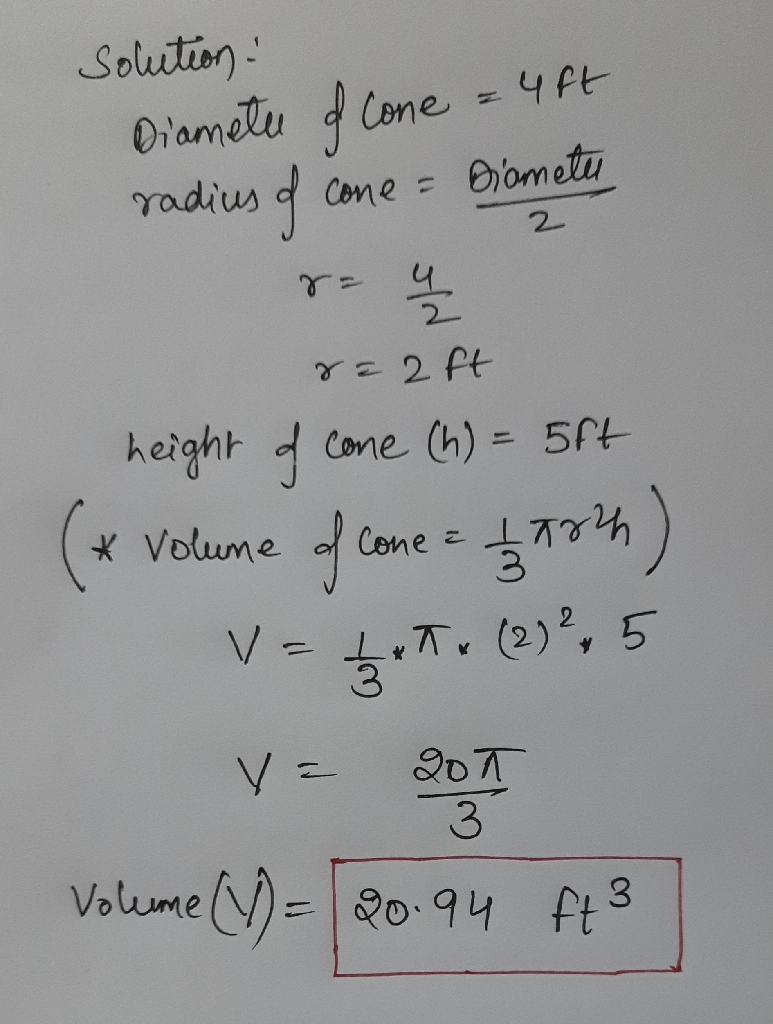 Solution :
Diameter of Cone = 4 ft
radius of cone = Diameter / 2
r = 4/2
r = 2 ft
height of cone (h) = 5ft
(* Volume of Cone = 1/3 πr²h)
V = 1/3 * π * (2)² * 5
V = 20π/3
Volume (V) = 20.94 ft³